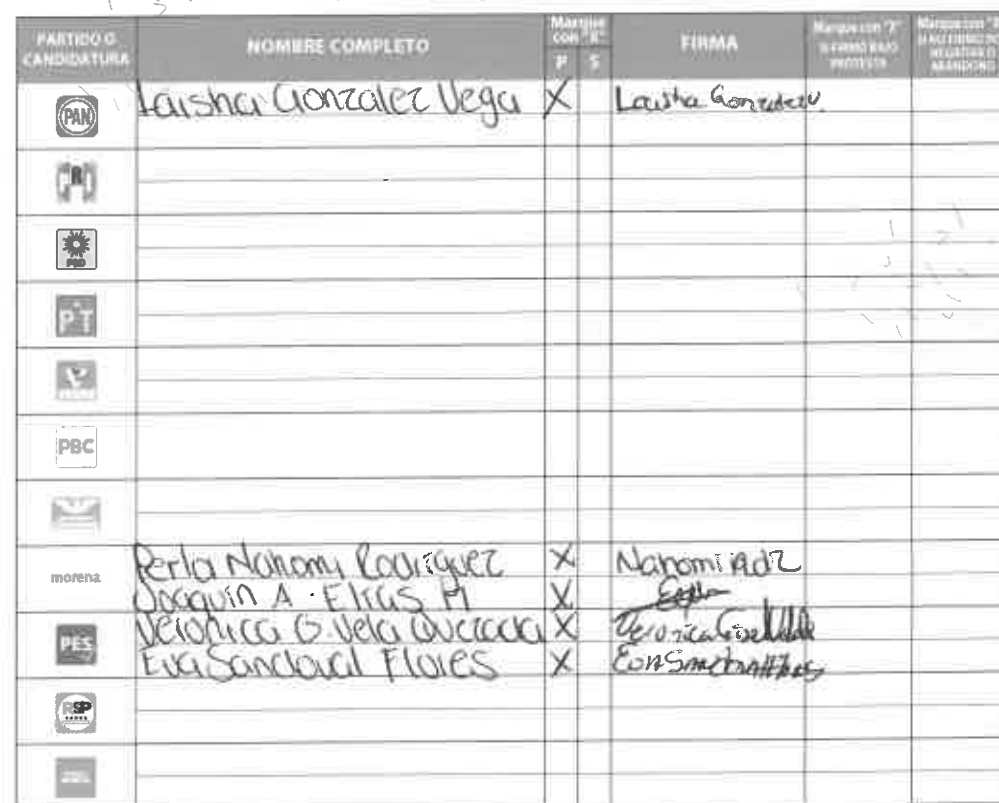 PARTIDO O CANDIDATURA NOMBRE COMPLETO Marque con "X" P S FIRMA Marque con "X" SI FIRMÓ BAJO PROTESTA Marque con "X" SI NO FIRMÓ POR NEGATIVA O ABANDONO
PAN Laisha Gonzalez Vega X Laisha Gonzalez V.
PRI
PRD
PT
VERDE
PBC
morena Perla Nahomi Rodríguez X Nahomi Rdz
Joaquin A. Elias M X
PES Veronica G. Vela Quezada X Veronica
Eva Sandoval Flores X Eva Sandoval Flores
RSP